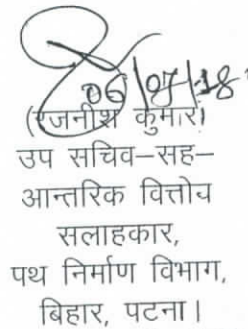 06/07/18
(रजनीश कुमार)
उप सचिव–सह–
आन्तरिक वित्तीय
सलाहकार,
पथ निर्माण विभाग,
बिहार, पटना।